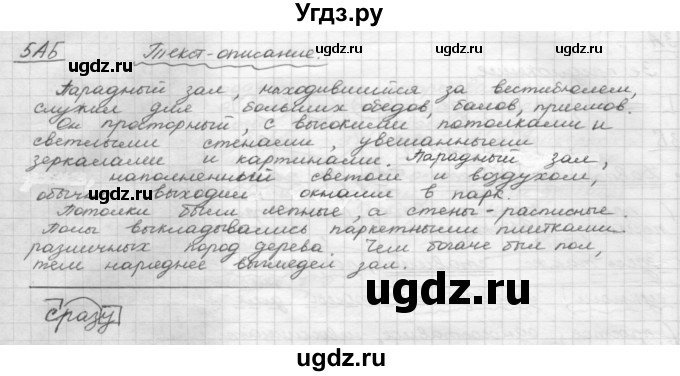 Угдз.ру
5АБ Текст-описание.
угдз.ru
Парадный зал, находившийся за вестибюлем,
служил для больших обедов, балов, приёмов.
Он просторный, с высокими потолками и
светлыми стенами, увешанными
зеркалами и картинами. Парадный зал,
наполненный светом и воздухом,
выходил окнами в парк.
Потолки были лепные, а стены - расписные.
Полы выкладывались паркетными плитками
различных пород дерева. Чем богаче был пол,
тем наряднее выглядел зал.
сразу
ugdz.ru
ugdz.ru
ugdz.ru
ugdz.ru
ugdz.ru
ugdz.ru